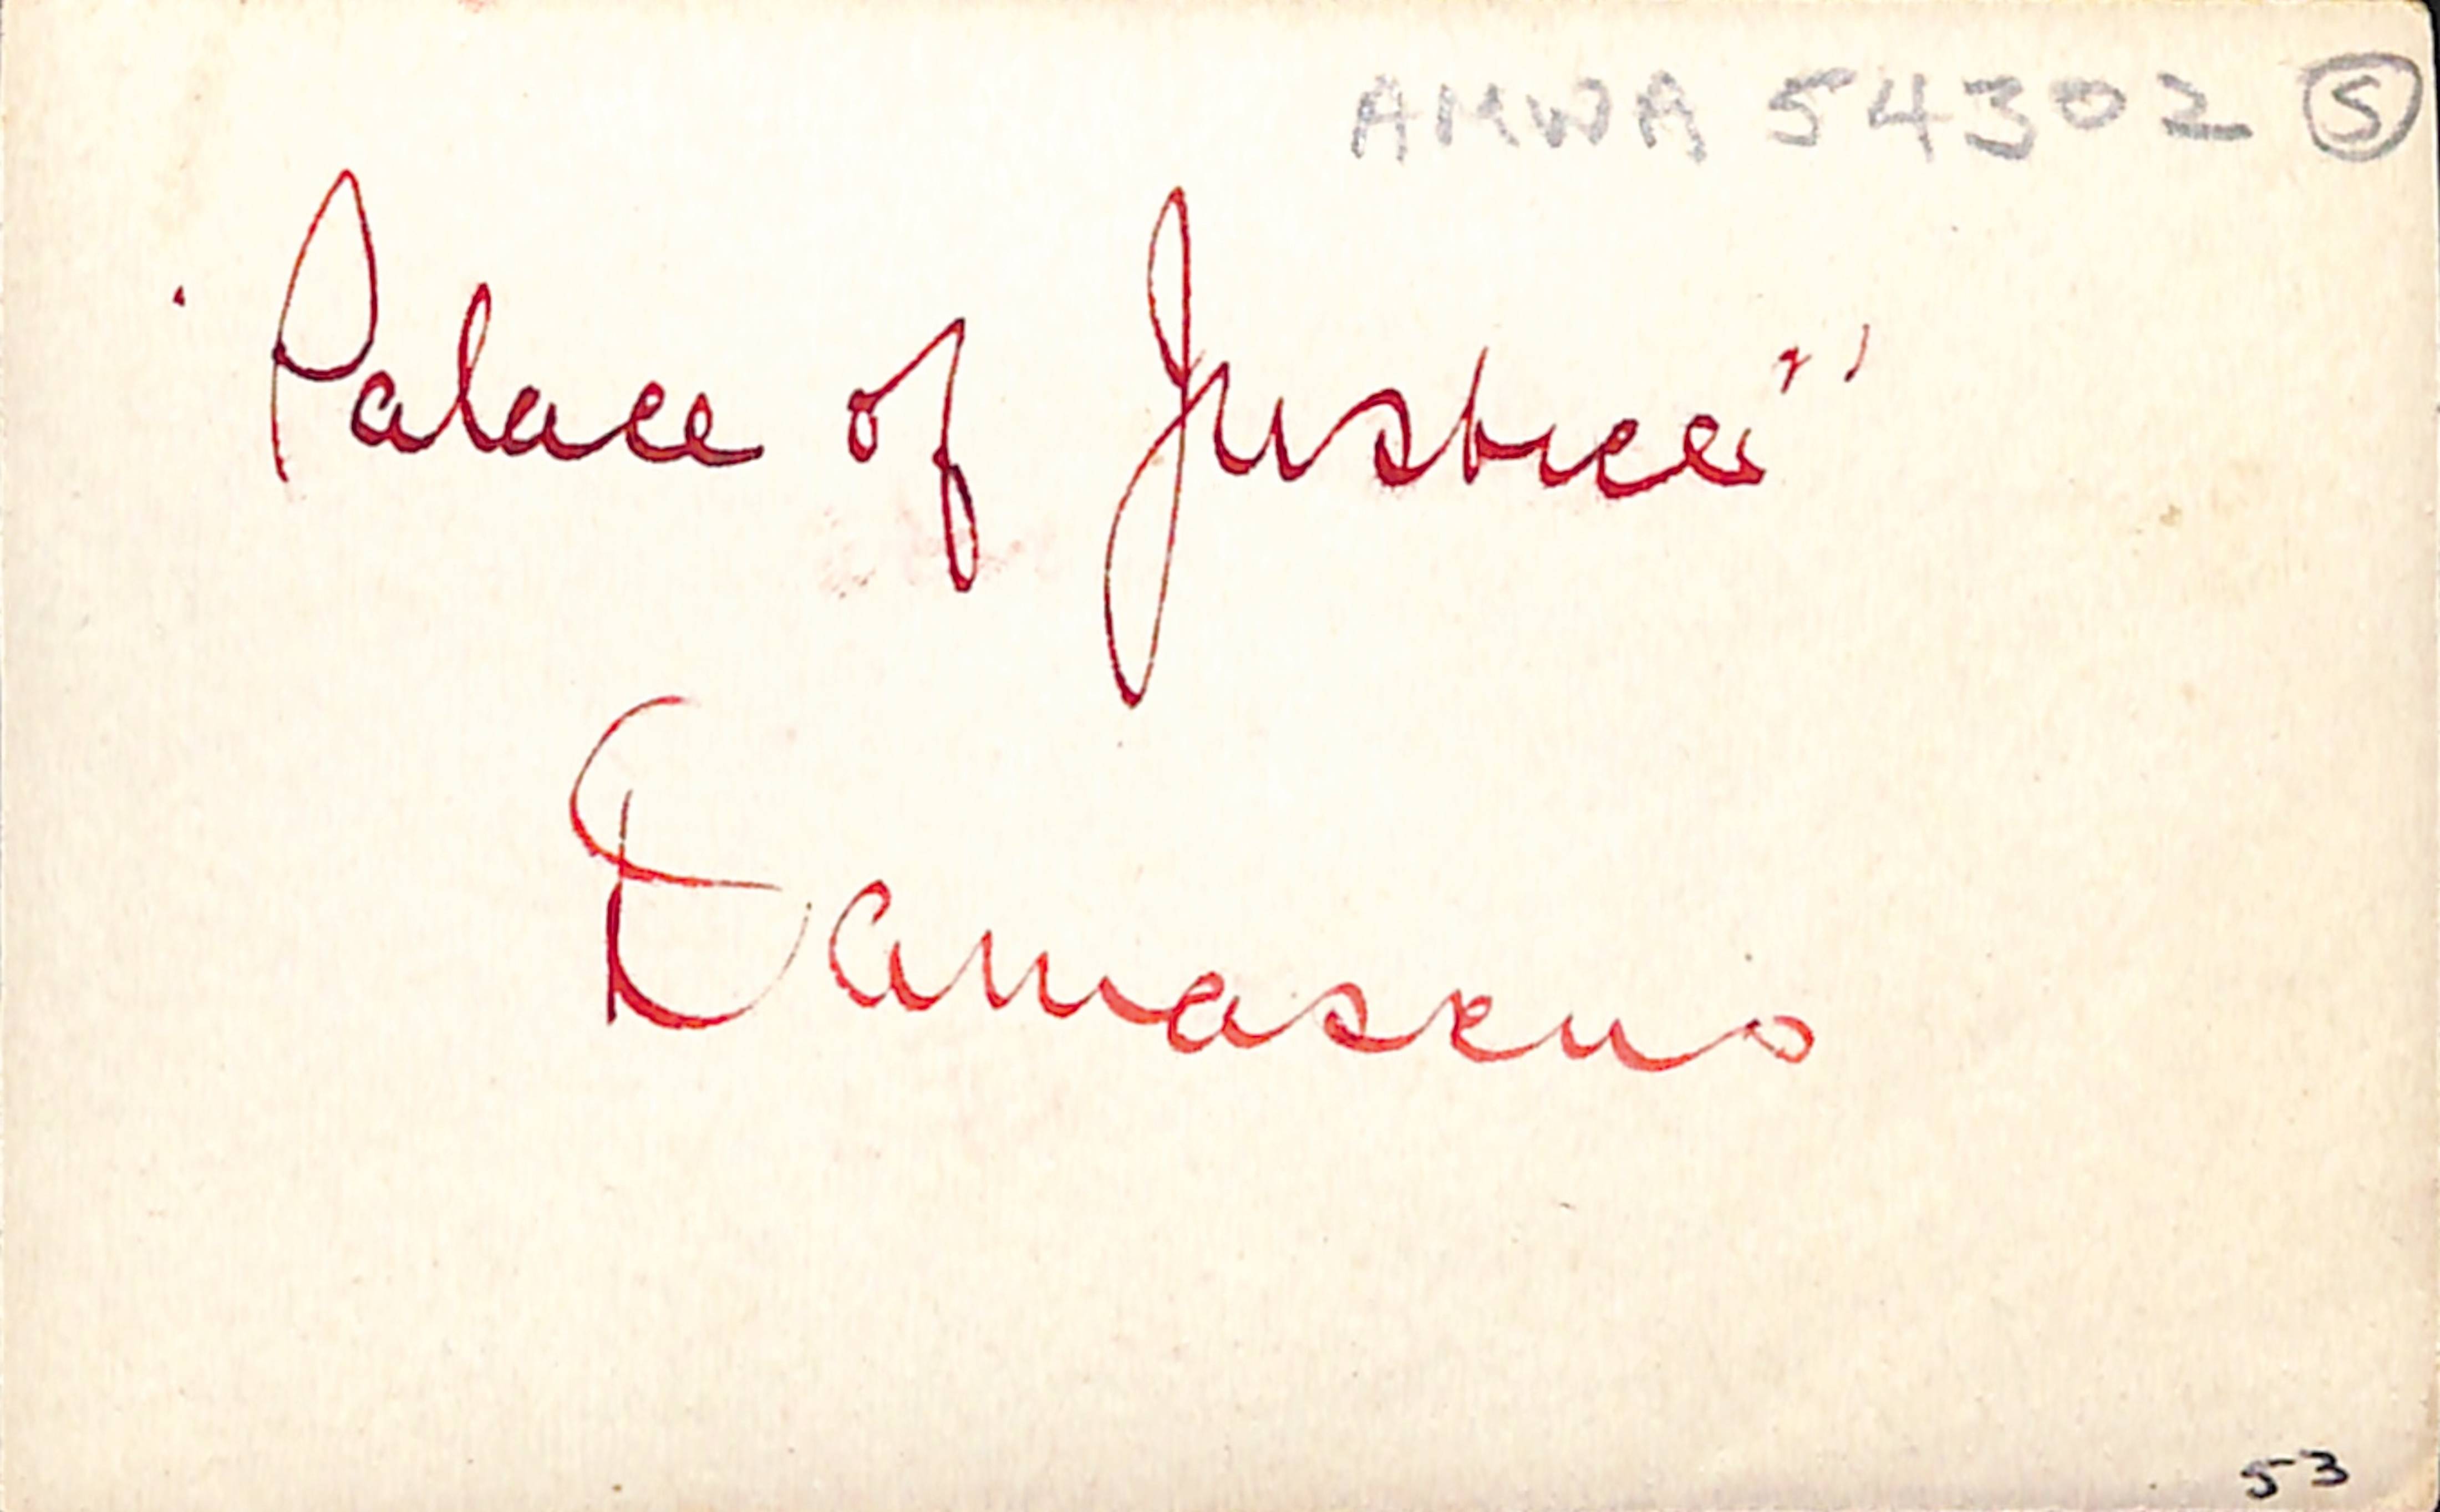 AMWA 54302 Ⓢ
"Palace of Justice"
Damascus
53